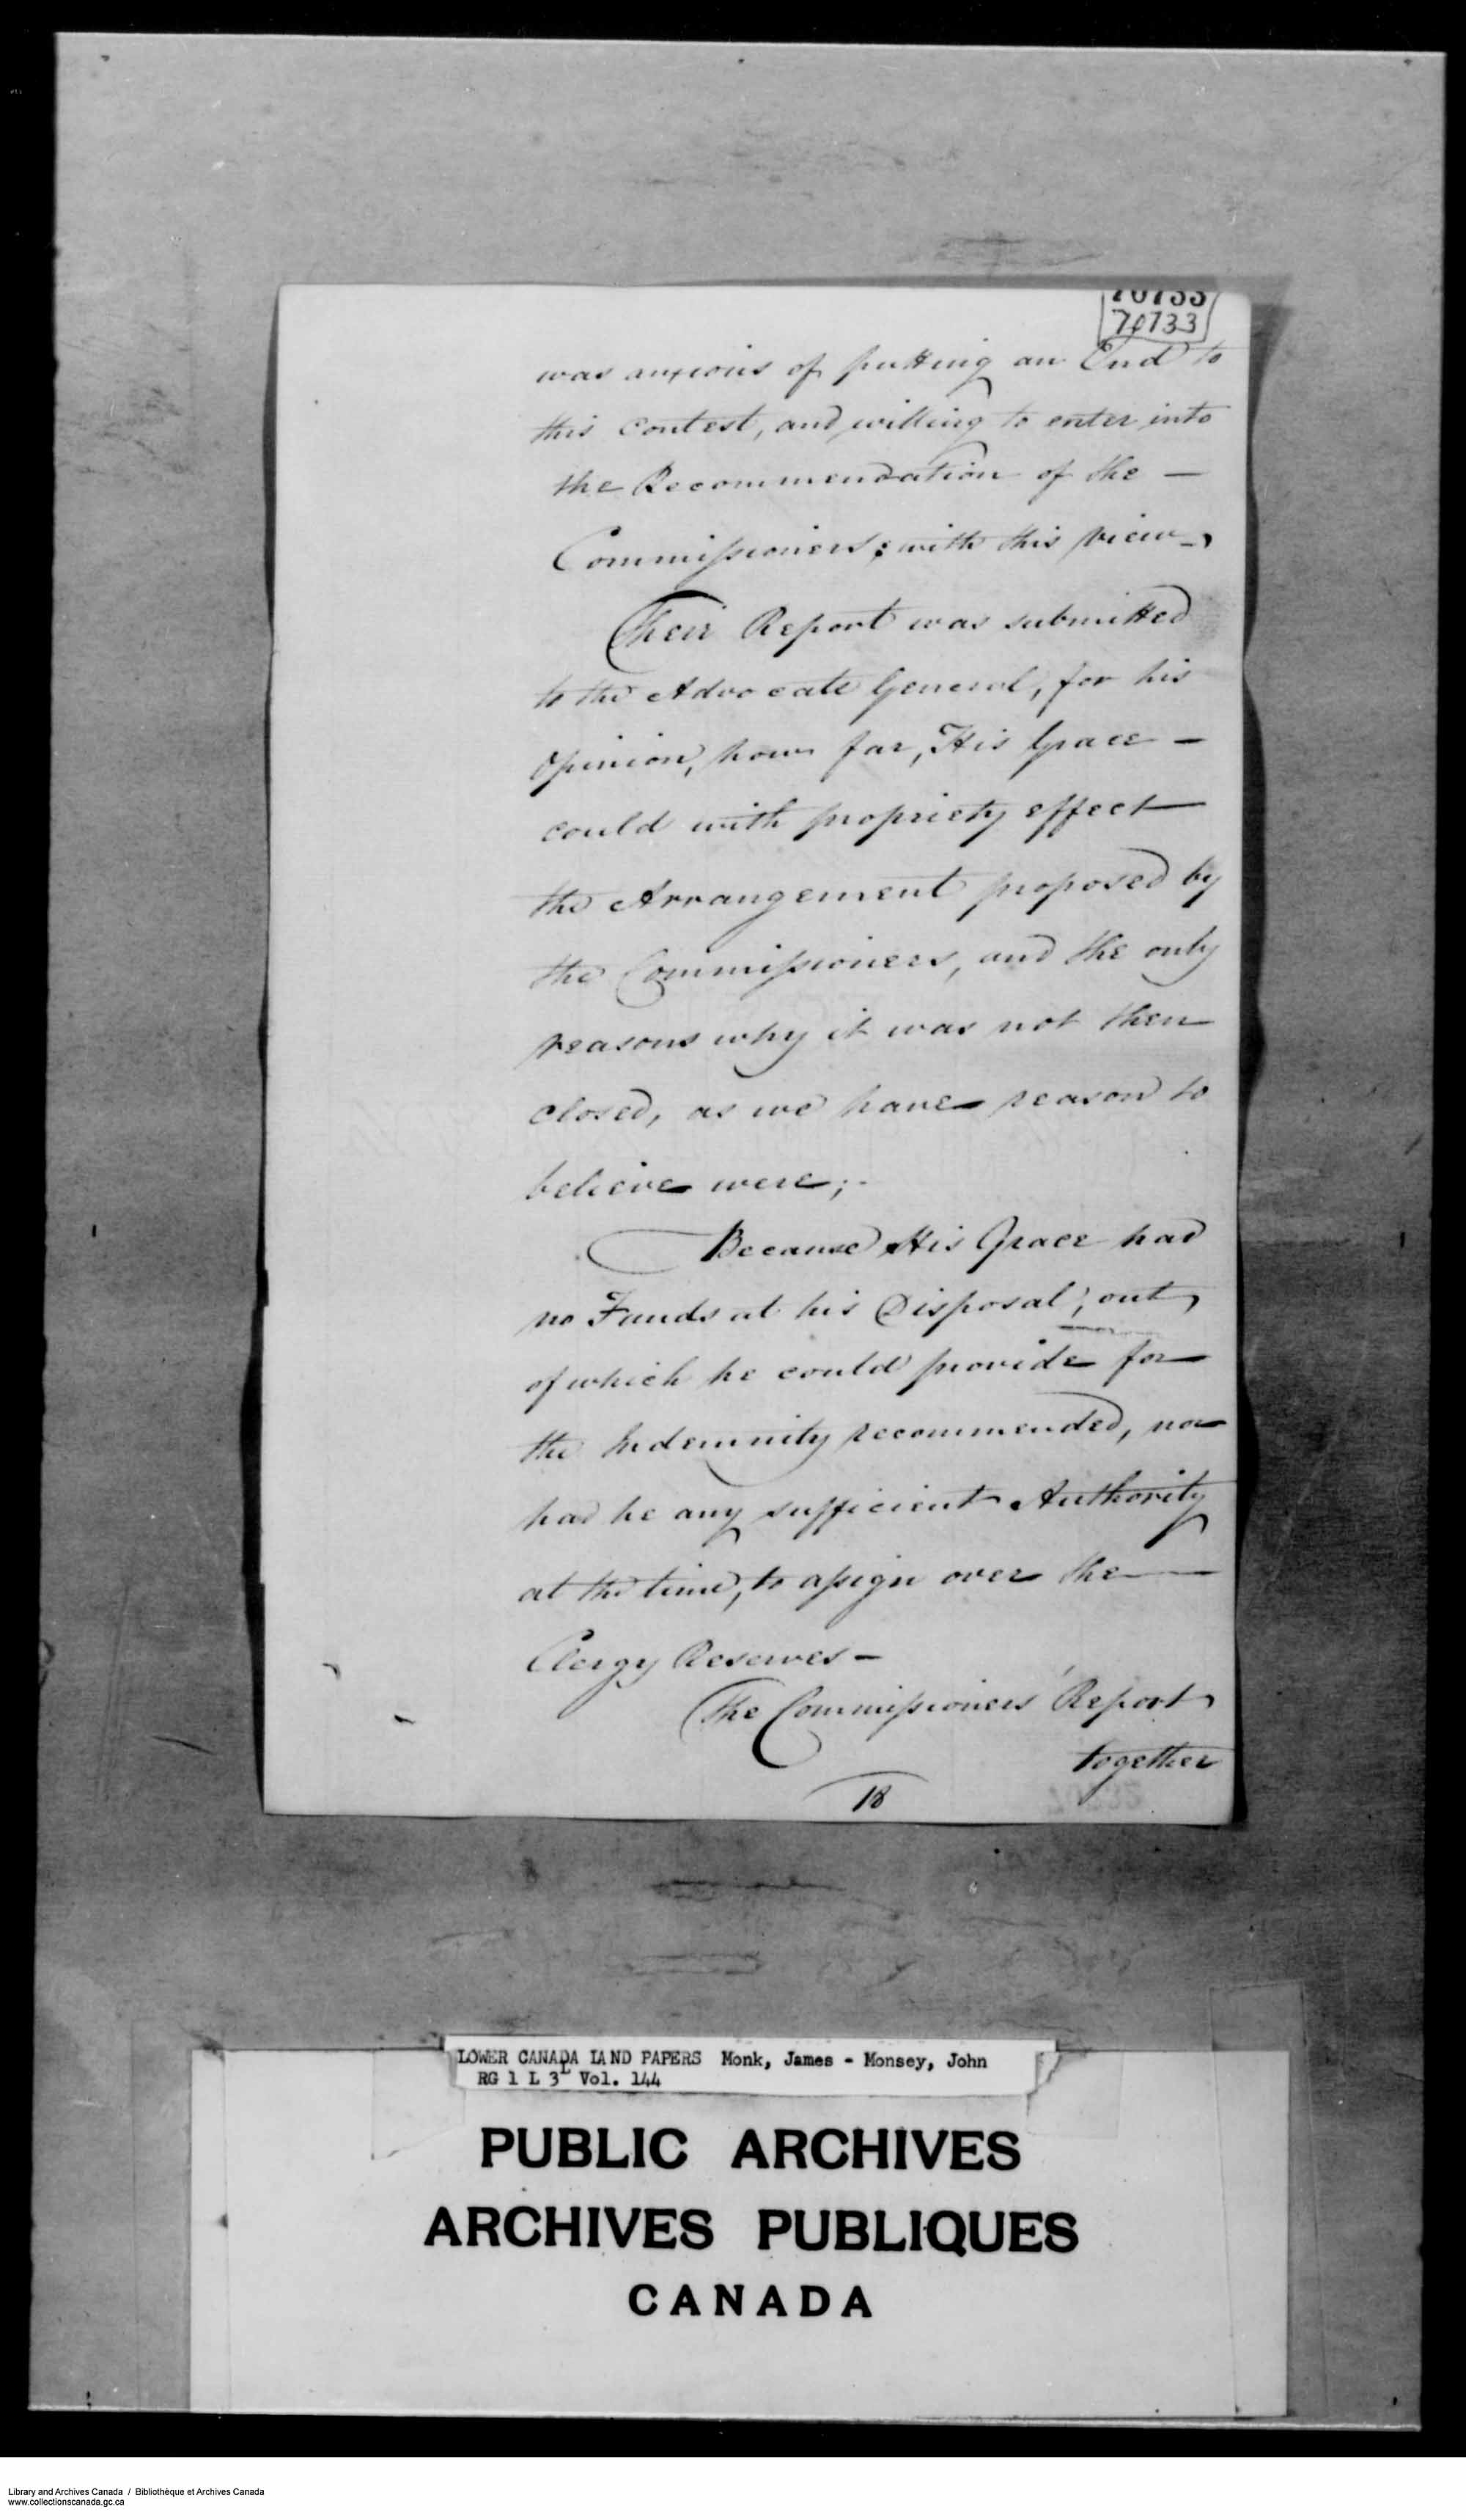 70133
70733
was anxious of putting an End to
this contest, and willing to enter into
the Recommendation of the —
Commissioners; with this view –
Their Report was submitted
to the Advocate General, for his
Opinion, how far, His Grace –
could with propriety effect
the Arrangement proposed by
the Commissioners, and the only
reasons why it was not then
closed, as we have reason to
believe were; -
Because His Grace had
no Funds at his Disposal; out
of which he could provide for
the Indemnity recommended, nor
had he any sufficient Authority
at the time, to assign over the —
Clergy Reserves –
The Commissioners' Report
together
18
LOWER CANADA LAND PAPERS Monk, James - Monsey, John
RG 1 L 3L Vol. 144
PUBLIC ARCHIVES
ARCHIVES PUBLIQUES
CANADA
Library and Archives Canada / Bibliothèque et Archives Canada
www.collectionscanada.gc.ca